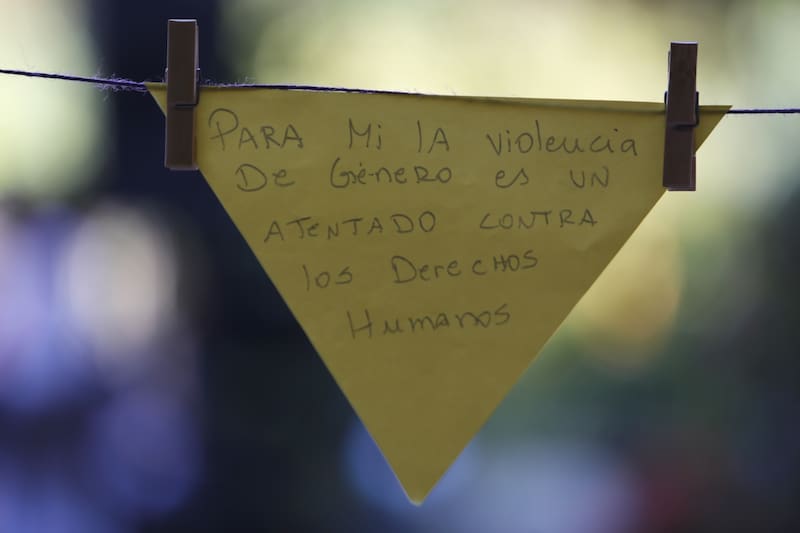 PARA Mi lA violencia
De Género es un
ATENTADO CONTRA
los DerecHos
Humanos